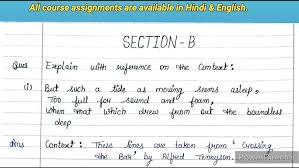 All course assignments are available in Hindi & English.
SECTION-B
Ques Explain with reference on the Context:
(i) But such a tide as moving seems asleep,
Too full for sound and foam,
When that which drew from out the boundless
deep
Ans Context: These lines are taken from 'Crossing
the Bar' by Alfred Tennyson.